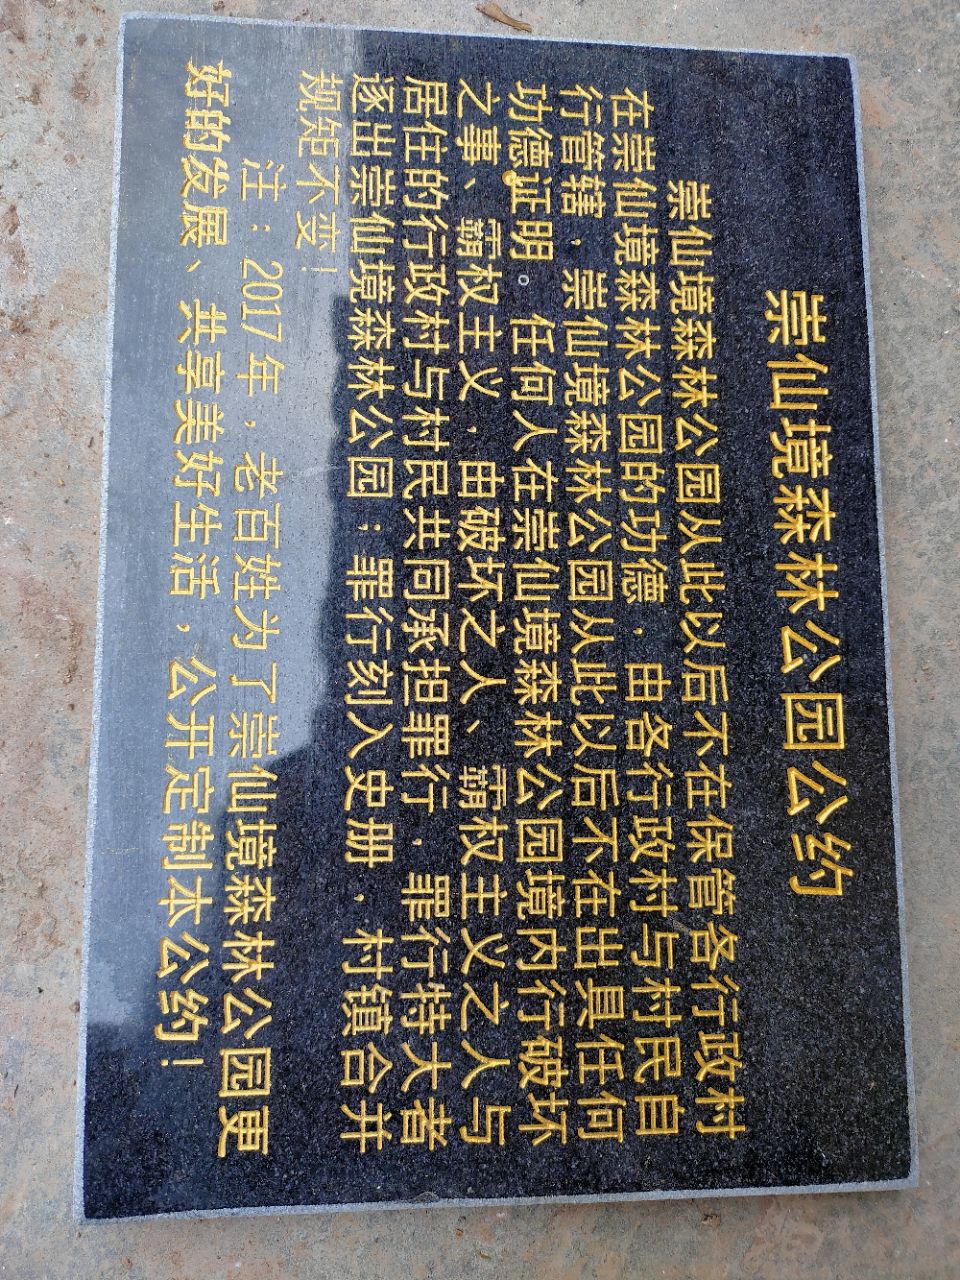 崇仙境森林公园公约
崇仙境森林公园从此以后不在保管各行政村
在崇仙境森林公园的功德，由各行政村与村民自
行管辖，崇仙境森林公园从此以后不在出具任何
功德证明。任何人在崇仙境森林公园境内行破坏
之事、霸权主义，由破坏之人、霸权主义之人与
居住的行政村与村民共同承担罪行，罪行特大者
逐出崇仙境森林公园；罪行刻入史册，村镇合并
规矩不变！
注：2017年，老百姓为了崇仙境森林公园更
好的发展、共享美好生活，公开定制本公约！